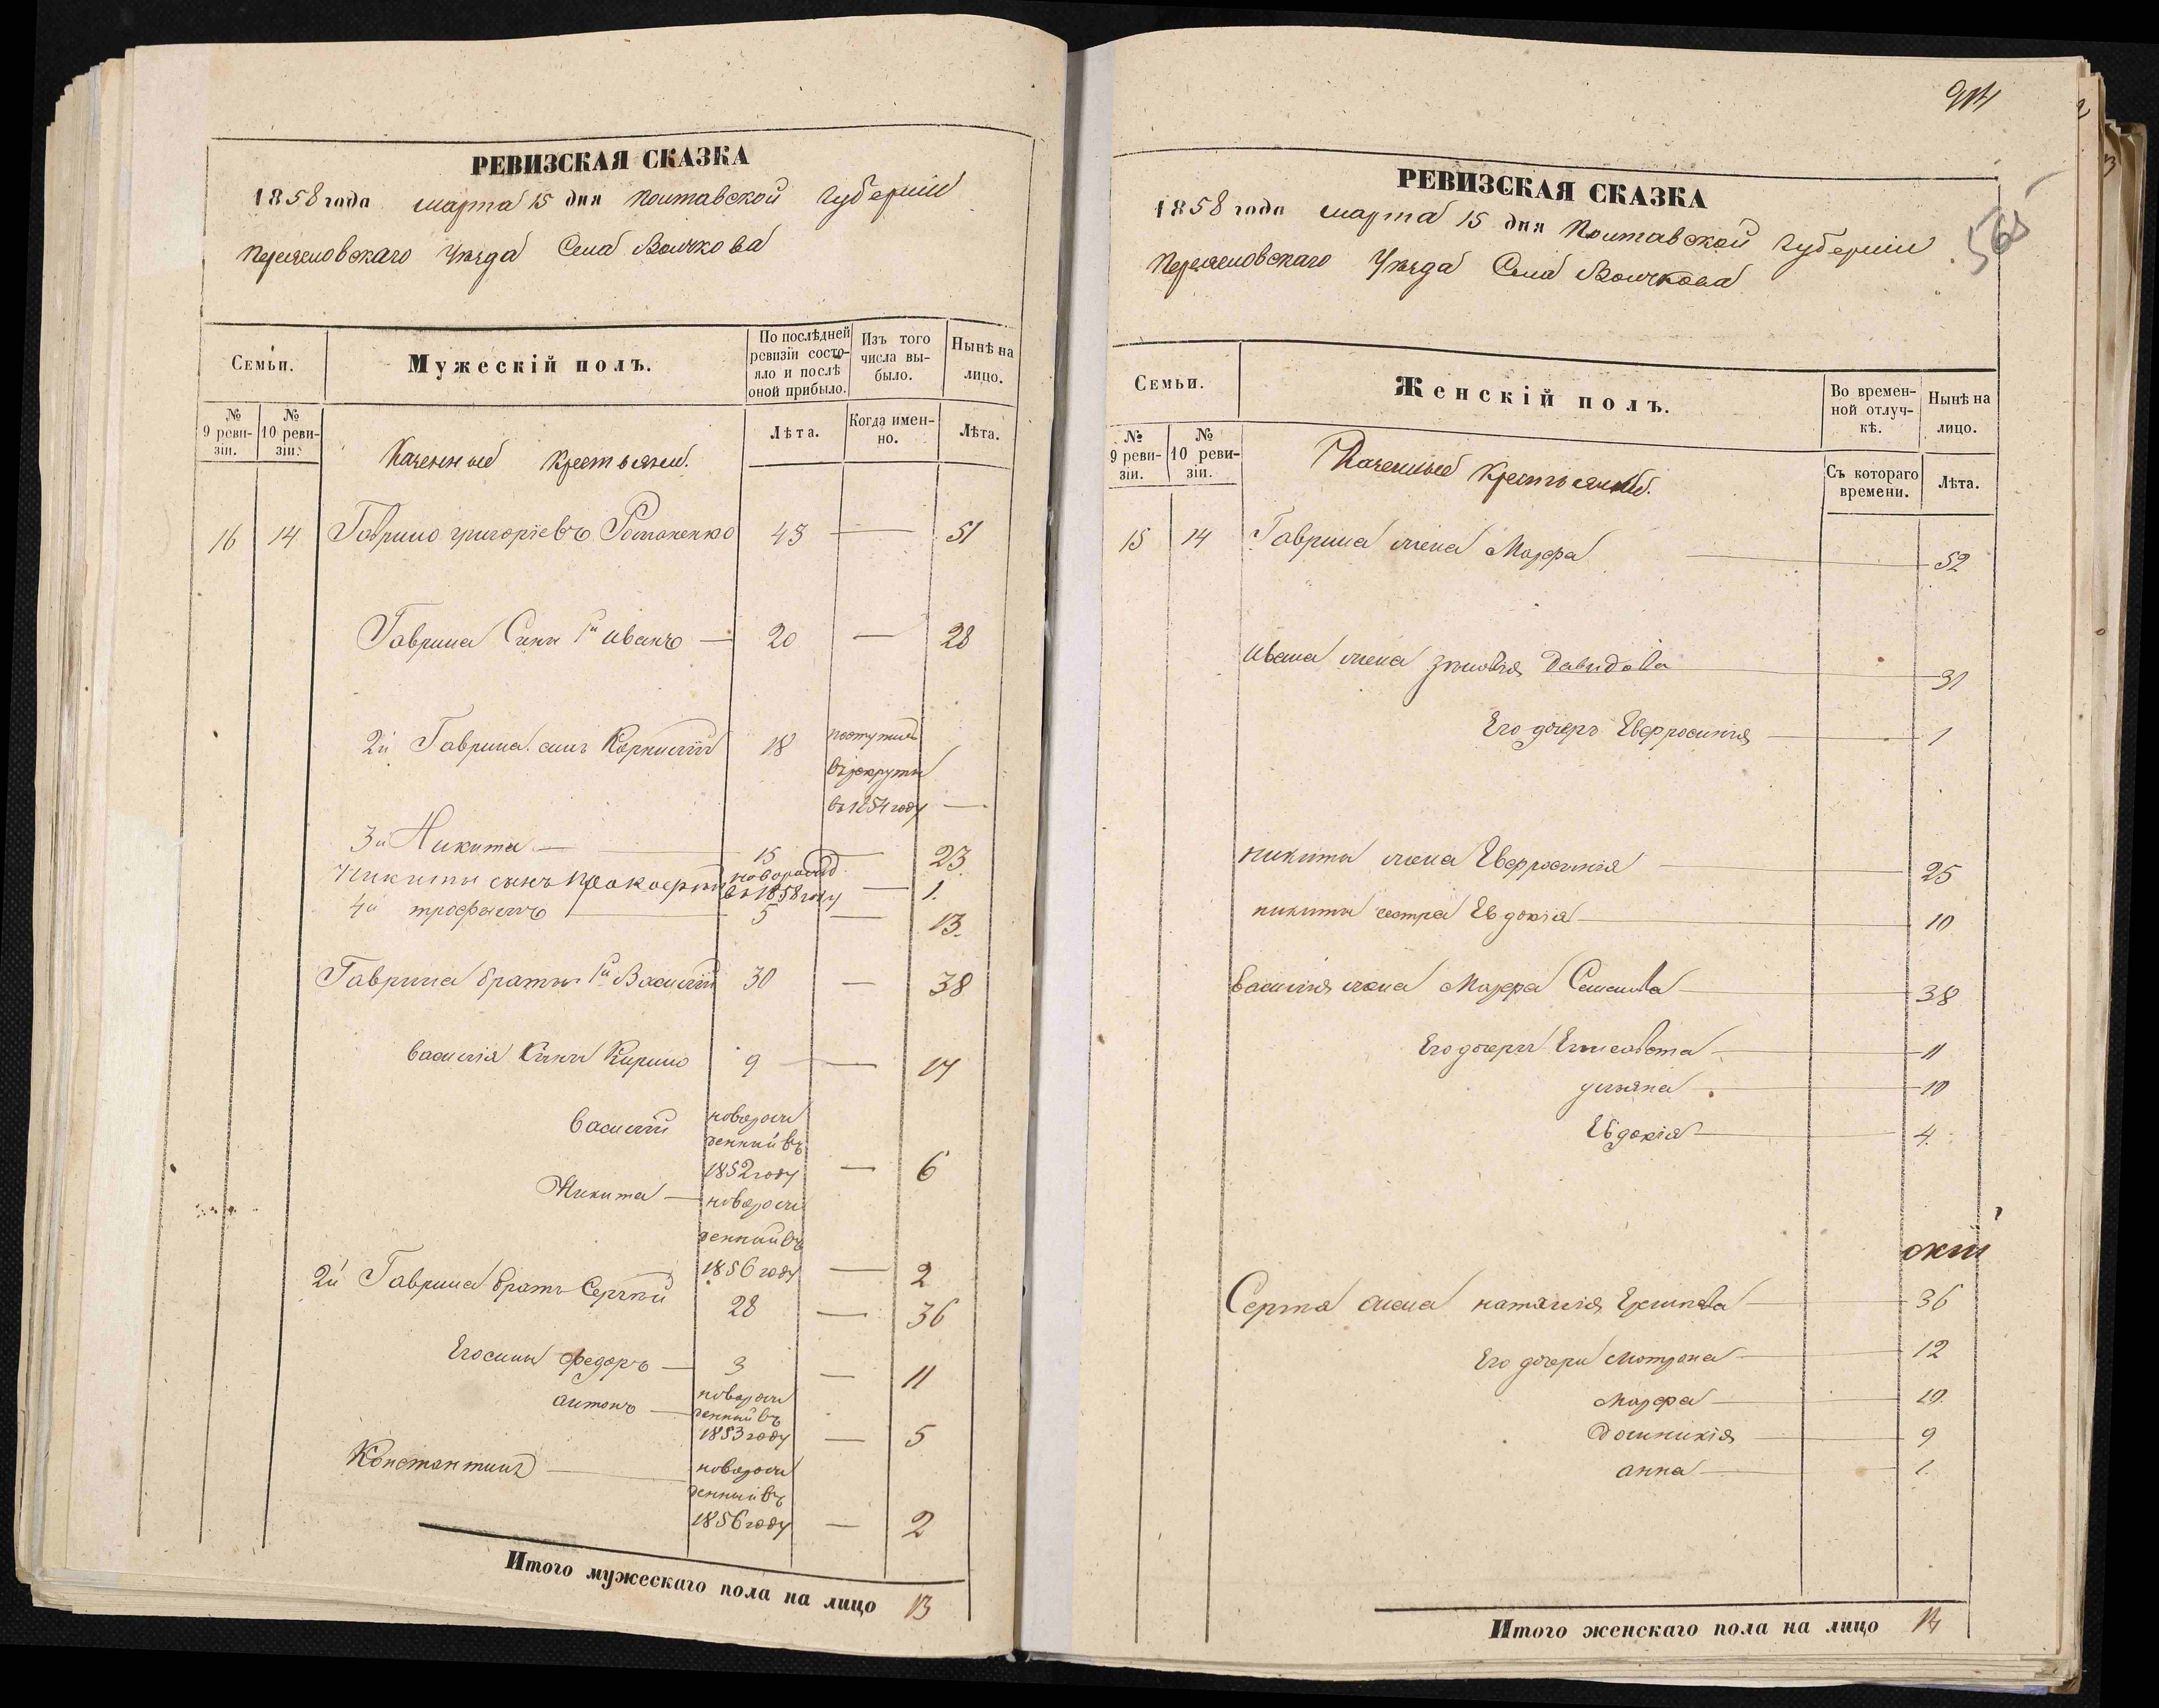 РЕВИЗСКАЯ СКАЗКА
1858 года марта 15 дня Полтавской Губерніи
Переяславскаго Уезда Села Волчкова
Семьи.
Мужескій полъ.
По послѣдней ревизіи состояло и послѣ оной прибыло.
Изъ того числа выбыло.
Нынѣ на лицо.
№ 9 ревизіи.
№ 10 ревизіи.
Казенные крестьяне.
Лѣта.
Когда именно.
Лѣта.
16 14 Гаврило григоріевъ Романенко 43 — 51
Гаврила Сины 1й иванъ — 20 — 28
2й Гаврила синъ Корнилій 18 поступилъ
въ рекруты
въ 1854 году —
3й Никита — 15 — 23
Никиты сынъ Прокофій новорожд
въ 1858 году — 1.
4й трофимъ 5 — 13.
Гаврила браты 1й Василій 30 — 38
василія Сины Кирило 9 — 17
василій новорож
денний въ
1852 году — 6
Никита — новорож
денний въ
1856 году — 2
2й Гаврила братъ Сергѣй 28 — 36
Его сины федоръ — 3 — 11
антонъ — новорож
денний въ
1853 году — 5
Константинъ — новорож
денний въ
1856 году — 2
Итого мужескаго пола на лицо 13
565
РЕВИЗСКАЯ СКАЗКА
1858 года марта 15 дня Полтавской Губерніи
Переяславскаго Уезда Села Волчкова
Семьи.
Женскій полъ.
Во временной отлучкѣ.
Нынѣ на лицо.
№ 9 ревизіи.
№ 10 ревизіи.
Казенные крестьяне.
Съ котораго времени.
Лѣта.
15 14 Гаврила жена Марфа — 52
ивана жена зѣновія Давидова — 31
Его дочерь Евфросинія — 1
никиты жена Евфросинія — 25
никиты сестра Евдокія — 10
василія жена Марфа Семенова — 38
Его дочери Елисавета — 11
уляна — 10
Евдокія — 4.
Сергѣя жена наталія — 36
Его дочери мотрона — 12
марфа — 10
Домникія — 9
анна — 1.
Итого женскаго пола на лицо 14